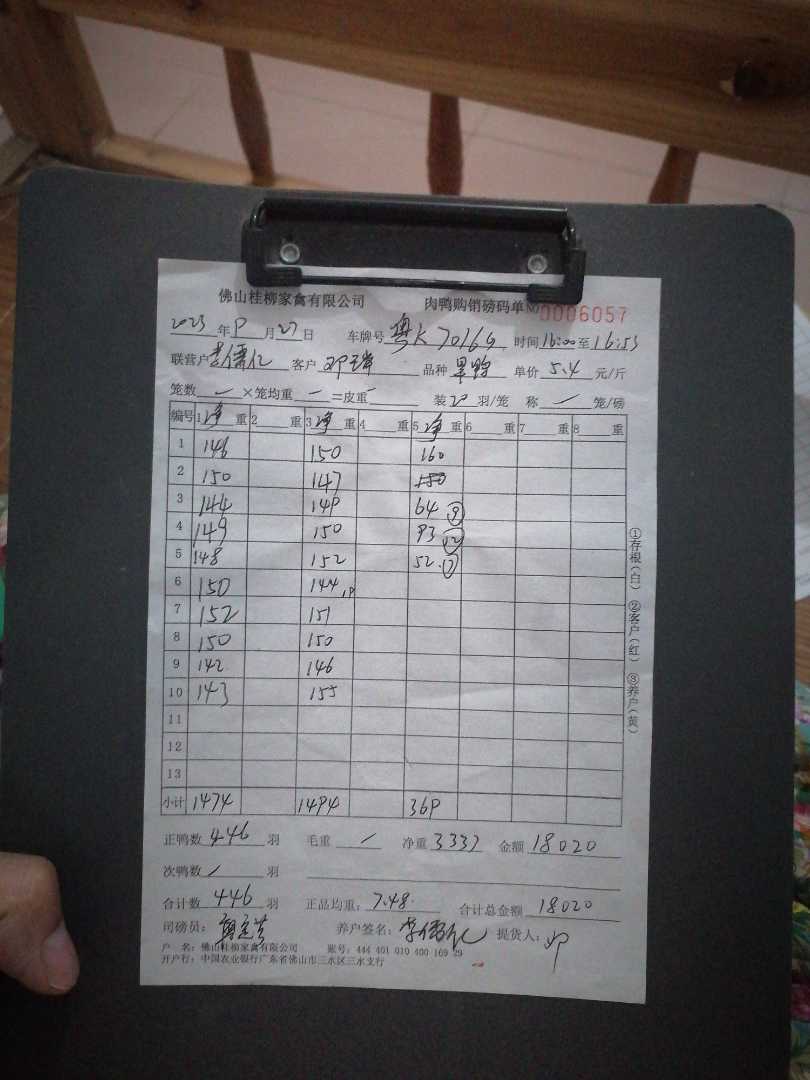 佛山桂柳家禽有限公司 肉鸭购销磅码单 № 0006057
2023年9月27日 车牌号粤K70169 时间16:00至16:53
联营户李儒亿 客户 邓 品种 单价5.4元/斤
笼数 一 ×笼均重 一 =皮重 一 装20羽/笼 称 一 笼/磅
编号 1净重 2 重 3净重 4 重 5净重 6 重 7 重 8 重
1 146 150 160
2 150 147 150
3 144 149 64 ⑨
4 149 150 93 ⑫
5 148 152 52 ⑦
6 150 144 18
7 152 151
8 150 150
9 142 146
10 143 155
11
12
13
小计 1474 1494 369
正鸭数 446 羽 毛重 / 净重 3337 金额 18020
次鸭数 / 羽
合计数 446 羽 正品均重: 7.48 合计总金额 18020
司磅员: 养户签名: 李儒亿 提货人: 邓
户 名: 佛山桂柳家禽有限公司 账号: 444 401 010 400 169 29
开户行: 中国农业银行广东省佛山市三水区三水支行
①存根(白) ②客户(红) ③养户(黄)